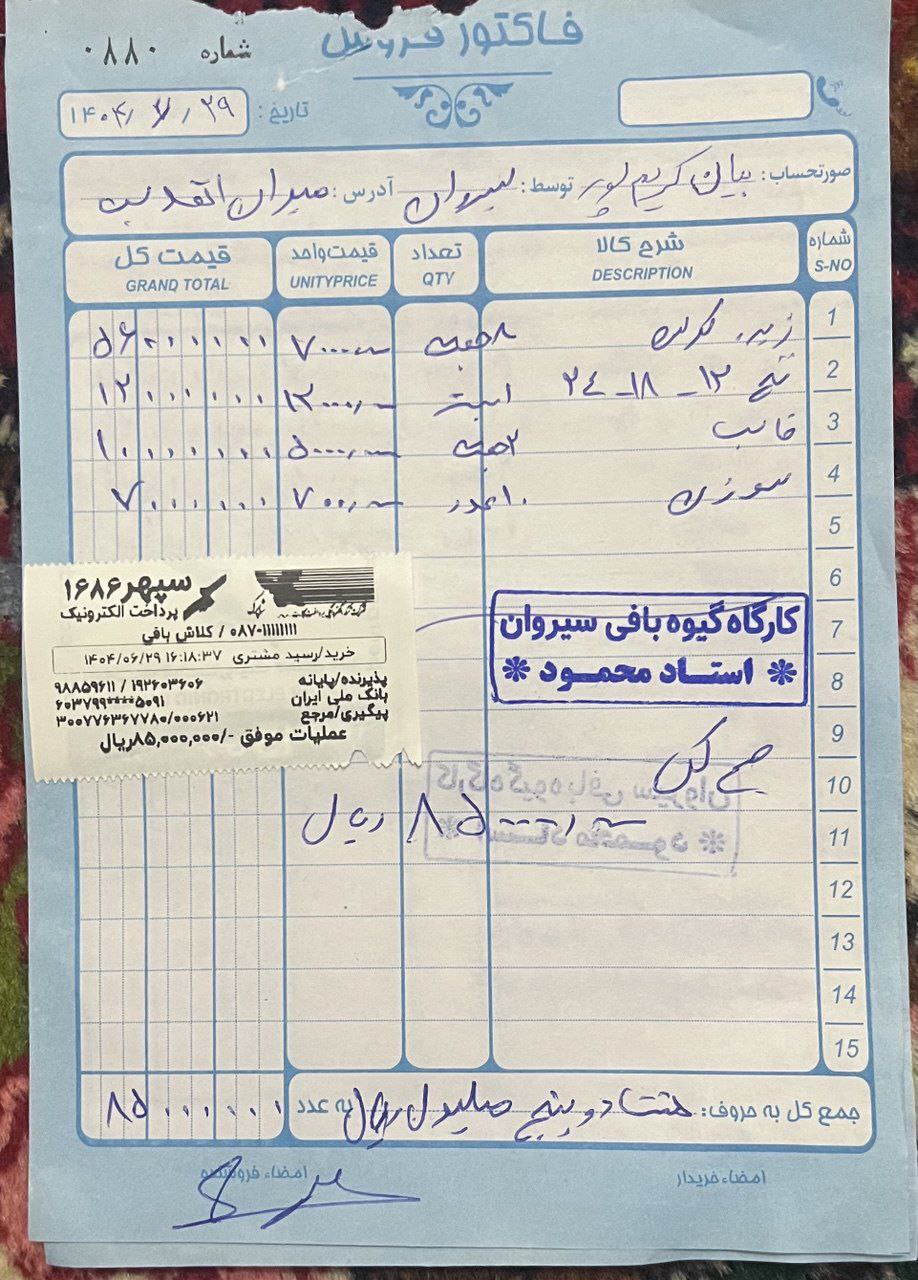 فاکتور فروش
شماره ۰۸۸۰
تاریخ: ۱۴۰۴/ /۲۹
صورتحساب: بیان کریم پور توسط: سیروان آدرس: میدان انقلاب
شماره شرح کالا تعداد قیمت واحد قیمت کل
S-NO DESCRIPTION QTY UNITYPRICE GRAND TOTAL
1 زیره ۸ جفت ۷۰۰۰۰۰۰ ۵۶۰۰۰۰۰۰
2 نخ ۱۲ - ۱۸ - ۲۴ ۱ ست ۱۲۰۰۰۰۰۰
3 قالب ۲ جفت ۵۰۰۰۰۰۰ ۱۰۰۰۰۰۰۰
4 سوزن ۱۰ عدد ۷۰۰۰۰۰ ۷۰۰۰۰۰۰
5
6
سپهر ۱۶۸۶
پرداخت الکترونیک
۰۸۷-۱۱۱۱۱۱۱۱ / کلاش بافی
خرید/رسید مشتری ۱۴۰۴/۰۶/۲۹ ۱۶:۱۸:۳۷
پذیرنده/پایانه ۹۸۸۵۹۶۱۱ / ۱۹۲۶۰۳۶۰۶
بانک ملی ایران ۶۰۳۷۹۹****۵۰۹۱
پیگیری/مرجع ۳۰۰۷۷۶۳۶۷۷۸۰/۰۰۰۶۲۱
عملیات موفق -/۸۵,۰۰۰,۰۰۰ریال
7 کارگاه گیوه بافی سیروان
8 * استاد محمود *
9
10 جمع کل
11 ۸۵۰۰۰۰۰۰ ریال
12
13
14
15
جمع کل به حروف: هشتاد و پنج میلیون ریال به عدد ۸۵۰۰۰۰۰۰
امضاء خریدار امضاء فروشنده